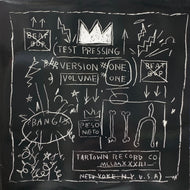 BEAT BOP
TEST PRESSING
VERSION ONE
VOLUME ONE
BEAT BOP
BANG!
TARTOWN RECORD CO
NEW YORK N.Y. U.S.A.